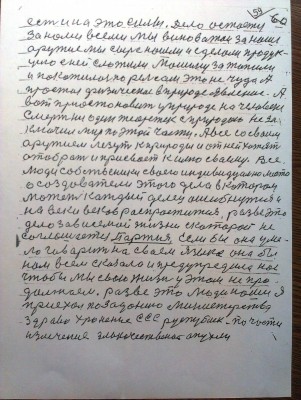 59 60
есть и на это силы. Дело остается
за нами всеми мы виноваты за наши
оружие мы сверх нашли и сделали продук-
цию с ней сложили Машину затопили
и покатилось по рельсам это не чудо А
простая физическая в природе явление. А
вот приостановить у природе на человека
Смерть ни один человек с природою не за-
ключил мир по этой части. А все со своим
оружием лезут к природы и от ней хотят
отобрать и присвоить к имю своему. Все
люди собственники своего индивидуального места
о создателем этого дела в котором
может каждый делец ошибиться и
на веки веков распроститься, разве это
дело зависемой жизни с которой не
соглашается Партия, если бы она уме-
ла говорить на своем языке она бы
нам всем сказала и предупредила нас
чтобы мы свою жизнь в этом не про-
должали. разве это люди нашли Я
приехал по заданию Министерства
Здраво хронение ССС республик - по части
излечения злокачественой опухоли